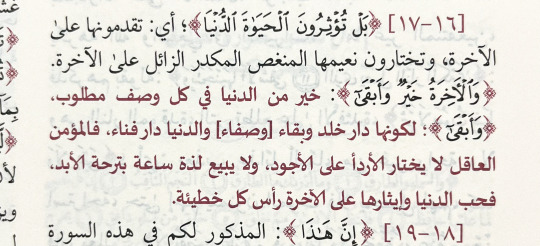 [١٦-١٧] ﴿بَلْ تُؤْثِرُونَ ٱلْحَيَوٰةَ ٱلدُّنْيَا﴾؛ أي: تقدمونها على
الآخرة، وتختارون نعيمها المنغص المكدر الزائل على الآخرة.
﴿وَٱلْآخِرَةُ خَيْرٌ وَأَبْقَىٰٓ﴾: خير من الدنيا في كل وصف مطلوب،
﴿وَأَبْقَىٰٓ﴾؛ لكونها دار خلد وبقاء [وصفاء] والدنيا دار فناء، فالمؤمن
العاقل لا يختار الأردأ على الأجود، ولا يبيع لذة ساعة بترحة الأبد،
فحب الدنيا وإيثارها على الآخرة رأس كل خطيئة.
[١٨-١٩] ﴿إِنَّ هَـٰذَا﴾: المذكور لكم في هذه السورة